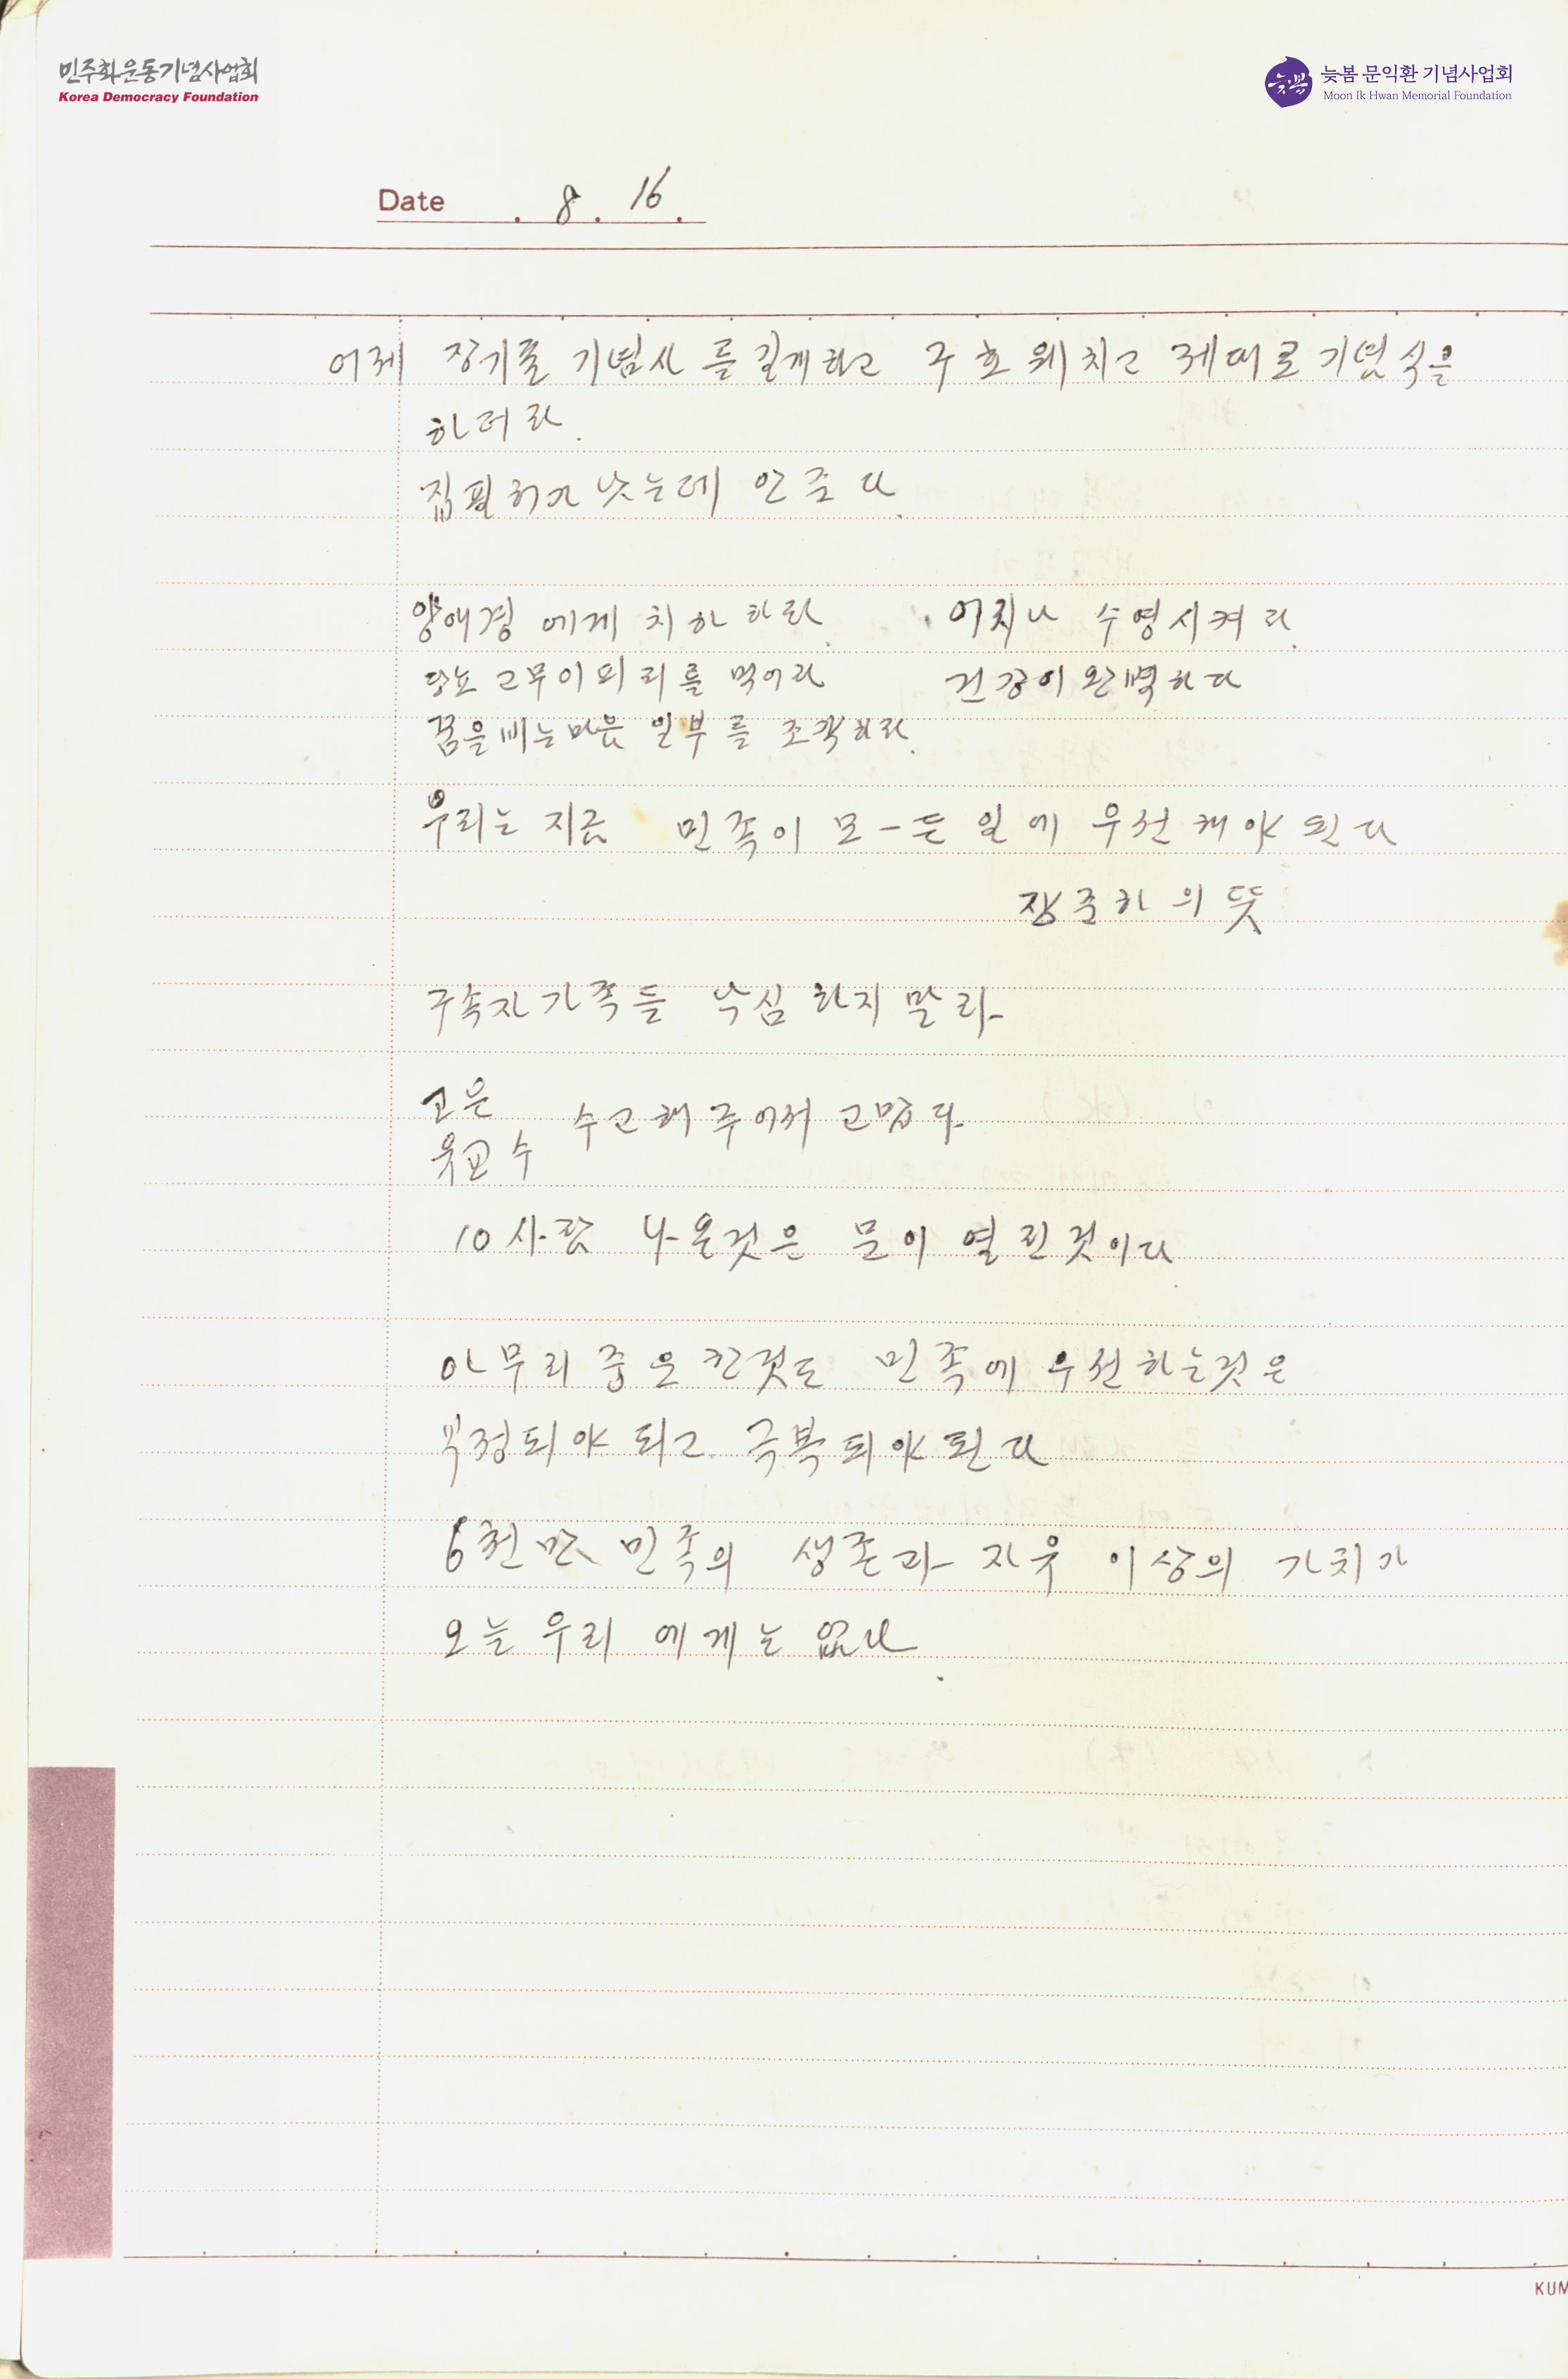 민주화운동기념사업회
Korea Democracy Foundation
늦봄
늦봄 문익환 기념사업회
Moon Ik Hwan Memorial Foundation
Date . 8 . 16 .
어제 장기표 기념사를 길게하고 구호 웨치고 제대로 기념식을
하더라.
집필허가 낫는데 안준다.
양애경 에게 치하 하라. 어지나 수영시켜라.
당뇨 고무이피리를 먹어라 건강이 완벽하다
꿈을비는마음 일부를 조각하라.
우리는 지금 민족이 모-든 일에 우선해야 된다
장준하의 뜻
구속자가족들 낙심하지 말라
고은
유교수 수고해주어서 고맙다
10사람 나온것은 문이 열린것이다.
아무리 중요한것도 민족에 우선하는것은
부정되야 되고 극복되야 된다
6천만 민족의 생존과 자유 이상의 가치가
오늘 우리 에게는 없다.
KUM